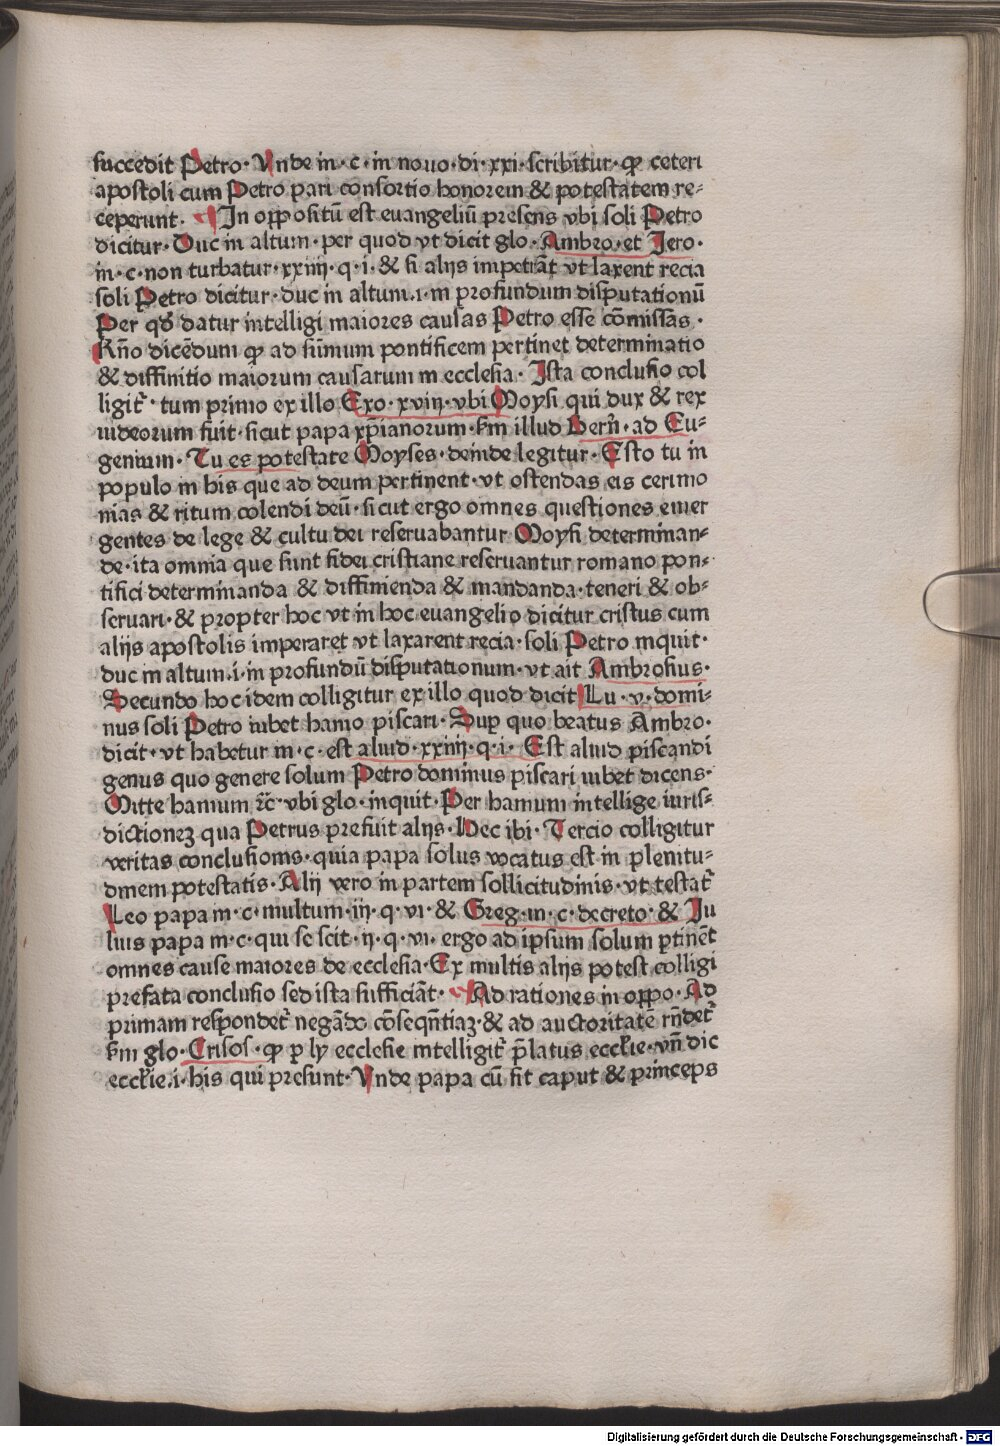 succedit Petro· Vnde in·c·in nouo·di·xxi·scribitur·ꝙ ceteri
apostoli cum Petro pari consortio honorem & potestatem re⸗
ceperunt· In oppositū est euangeliū presens vbi soli Petro
dicitur·Duc in altum·per quod vt dicit glo·Ambro·et Jero·
in·c·non turbatur·xxiiij·q·i·& si alijs impetrāt vt laxent recia
soli Petro dicitur·duc in altum.i·in profundum disputationū
Per qđ datur intelligi maiores causas Petro esse cōmissas·
Rño dicēdum ꝙ ad sūmum pontificem pertinet determinatio
& diffinitio maiorum causarum in ecclesia· Ista conclusio col
ligit᷑· tum primo ex illo Exo·xviij·vbi Moysi qui dux & rex
iudeorum fuit·sicut papa xp̄ianorum·ẜm illud Bern̄·ad Eu⸗
genium·Tu es potestate Moyses·deinde legitur·Esto tu in
populo in his que ad deum pertinent·vt ostendas eis cerimo
nias & ritum colendi deū·sicut ergo omnes questiones emer
gentes de lege & cultu dei reseruabantur Moysi determinan⸗
de·ita omnia que sunt fidei cristiane reseruantur romano pon⸗
tifici determinanda & diffinienda & mandanda·teneri & ob⸗
seruari·& propter hoc vt in hoc euangelio dicitur cristus cum
alijs apostolis imperaret vt laxarent recia·soli Petro inquit·
duc in altum.i·in profundū disputationum·vt ait Ambrosius·
Secundo hoc idem colligitur ex illo quod dicit Lu·v·domi⸗
nus soli Petro iubet hamo piscari·Suꝑ quo beatus Ambro·
dicit·vt habetur in·c·est aliud·xxiiij·q·i· Est aliud piscandi
genus quo genere solum Petro dominus piscari iubet dicens·
Mitte hamum ⁊c̄·vbi glo·inquit·Per hamum intellige iuris⸗
dictionez qua Petrus prefuit alijs·Hec ibi·Tercio colligitur
veritas conclusionis·quia papa solus vocatus est in plenitu⸗
dinem potestatis·Alij vero in partem sollicitudinis·vt testat᷑
Leo papa in·c·multum·iij·q·vi·& Greg·in·c·decreto·& Iu
lius papa in·c·qui se scit·ij·q·vi·ergo ad ipsum solum ꝑtinēt
omnes cause maiores de ecclesia·Ex multis alijs potest colligi
prefata conclusio sed ista sufficiāt· Ad rationes in oppo·Ad
primam respondet᷑ negādo cōseqn̄tiaz·& ad auctoritatē rn̄det᷑
ẜm glo·Crisos·ꝙ ꝑ ly ecclesie intelligit᷑ p̄latus eccƚie·vn̄ dic
eccƚie.i·his qui presunt·Vnde papa cū sit caput & princeps
Digitalisierung gefördert durch die Deutsche Forschungsgemeinschaft - DFG